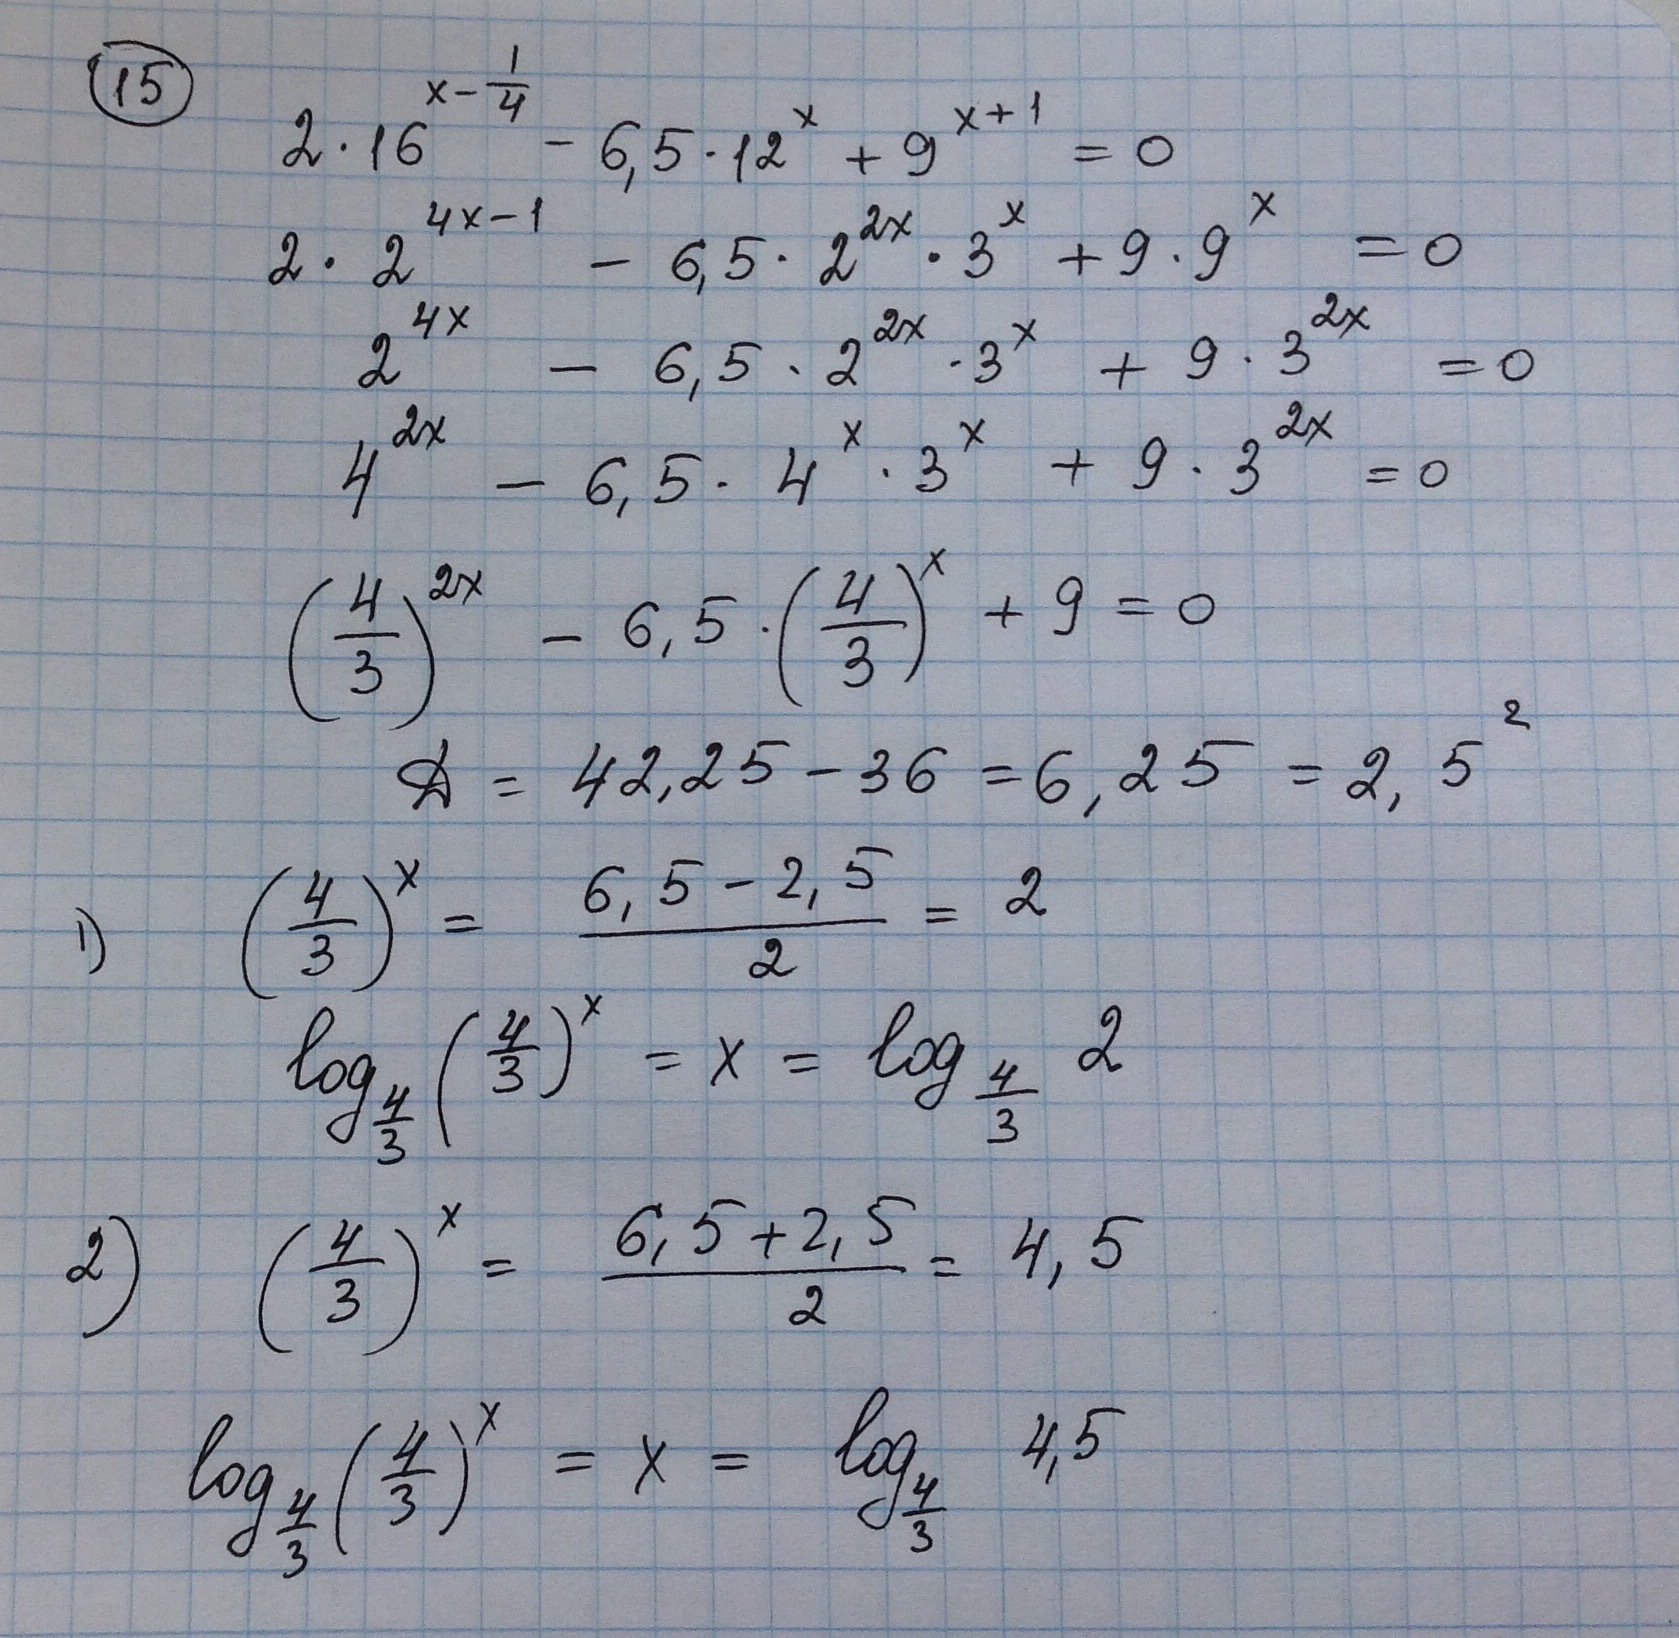 15
2·16^(x-1/4) - 6,5·12^x + 9^(x+1) = 0
2·2^(4x-1) - 6,5·2^(2x)·3^x + 9·9^x = 0
2^(4x) - 6,5·2^(2x)·3^x + 9·3^(2x) = 0
4^(2x) - 6,5·4^x·3^x + 9·3^(2x) = 0
(4/3)^(2x) - 6,5·(4/3)^x + 9 = 0
D = 42,25 - 36 = 6,25 = 2,5^2
1) (4/3)^x = (6,5 - 2,5)/2 = 2
log_(4/3) (4/3)^x = x = log_(4/3) 2
2) (4/3)^x = (6,5 + 2,5)/2 = 4,5
log_(4/3) (4/3)^x = x = log_(4/3) 4,5